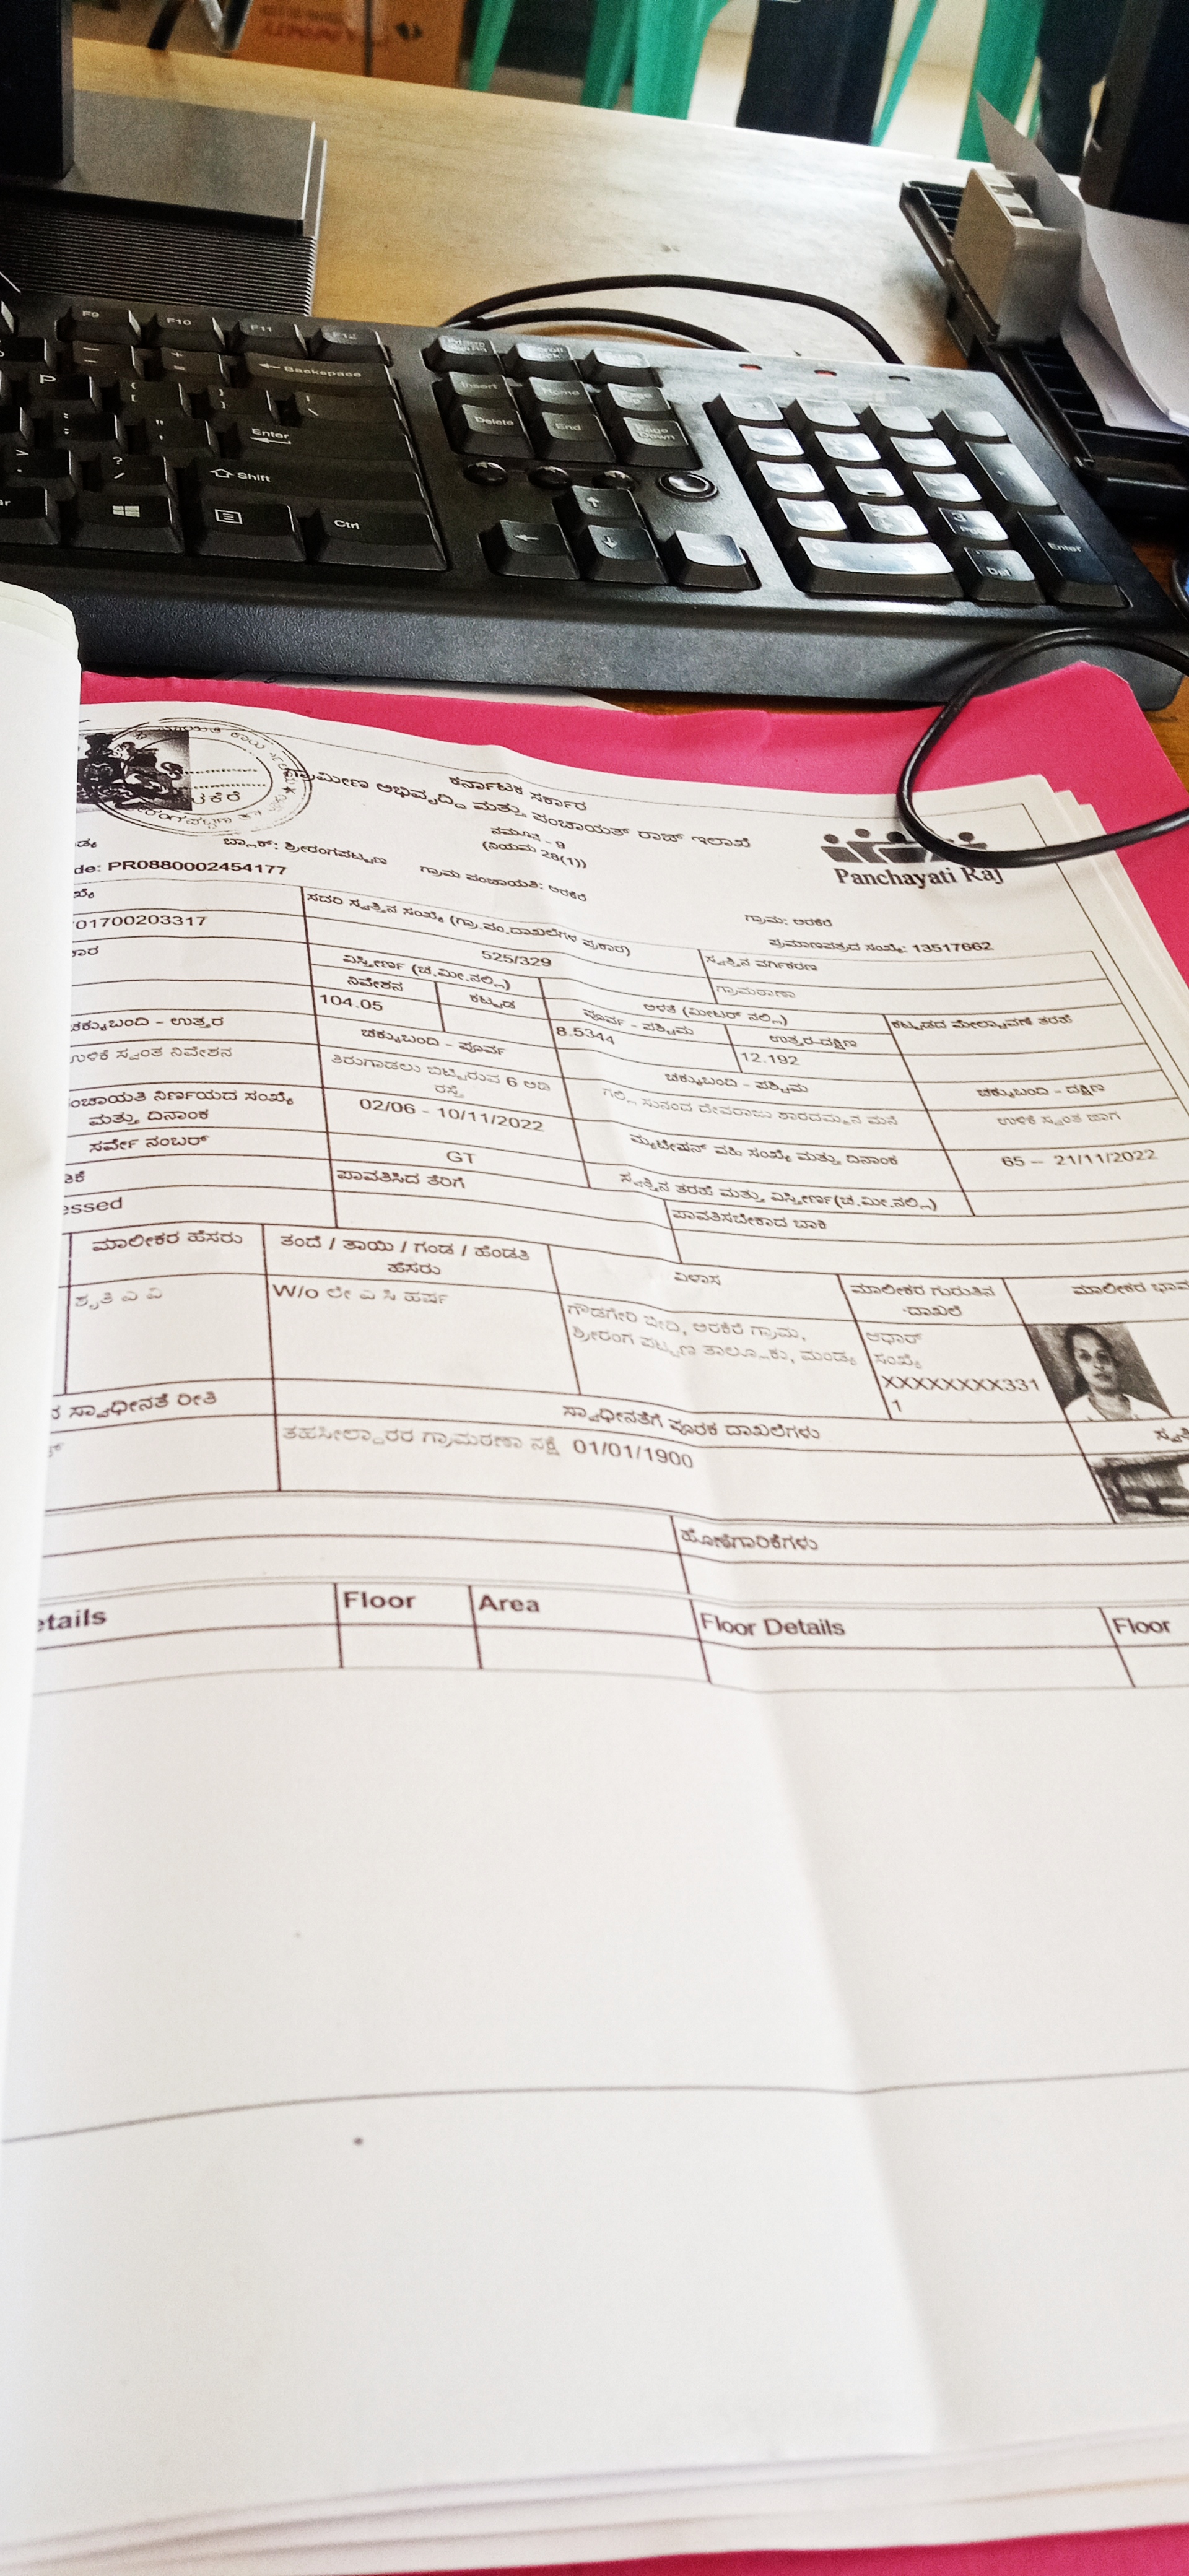 F9 F10 F11 F12
Backspace
P
Insert Home
Enter
Delete End Page Down
Shift
Ctrl
Enter
Del
ಕರ್ನಾಟಕ ಸರ್ಕಾರ
ಗ್ರಾಮೀಣ ಅಭಿವೃದ್ಧಿ ಮತ್ತು ಪಂಚಾಯತ್ ರಾಜ್ ಇಲಾಖೆ
ನಮೂನೆ - 9
(ನಿಯಮ 28(1))
Panchayati Raj
ಬ್ಲಾಕ್: ಶ್ರೀರಂಗಪಟ್ಟಣ ಗ್ರಾಮ ಪಂಚಾಯತಿ: ಅರಕೆರೆ ಗ್ರಾಮ: ಅರಕೆರೆ
de: PR0880002454177
ಪ್ರಮಾಣಪತ್ರದ ಸಂಖ್ಯೆ: 13517662
ಸದರಿ ಸ್ವತ್ತಿನ ಸಂಖ್ಯೆ (ಗ್ರಾ.ಪಂ.ದಾಖಲೆಗಳ ಪ್ರಕಾರ) ಸ್ವತ್ತಿನ ವರ್ಗೀಕರಣ
01700203317 525/329 ಗ್ರಾಮಠಾಣಾ
ಕಾರ ವಿಸ್ತೀರ್ಣ (ಚ.ಮೀ.ನಲ್ಲಿ) ಅಳತೆ (ಮೀಟರ್ ನಲ್ಲಿ) ಕಟ್ಟಡದ ಮೇಲ್ಚಾವಣಿ ತರಹೆ
ನಿವೇಶನ ಕಟ್ಟಡ ಪೂರ್ವ - ಪಶ್ಚಿಮ ಉತ್ತರ-ದಕ್ಷಿಣ
104.05 8.5344 12.192
ಚಕ್ಕುಬಂದಿ - ಉತ್ತರ ಚಕ್ಕುಬಂದಿ - ಪೂರ್ವ ಚಕ್ಕುಬಂದಿ - ಪಶ್ಚಿಮ ಚಕ್ಕುಬಂದಿ - ದಕ್ಷಿಣ
ಉಳಿಕೆ ಸ್ವಂತ ನಿವೇಶನ ತಿರುಗಾಡಲು ಬಿಟ್ಟಿರುವ 6 ಅಡಿ ರಸ್ತೆ ಗಲ್ಲಿ ಸುನಂದ ದೇವರಾಜು ಶಾರದಮ್ಮನ ಮನೆ ಉಳಿಕೆ ಸ್ವಂತ ಜಾಗ
ಂಚಾಯತಿ ನಿರ್ಣಯದ ಸಂಖ್ಯೆ ಮತ್ತು ದಿನಾಂಕ 02/06 - 10/11/2022 ಮ್ಯುಟೇಷನ್ ವಹಿ ಸಂಖ್ಯೆ ಮತ್ತು ದಿನಾಂಕ 65 – 21/11/2022
ಸರ್ವೇ ನಂಬರ್ GT ಸ್ವತ್ತಿನ ತರಹೆ ಮತ್ತು ವಿಸ್ತೀರ್ಣ(ಚ.ಮೀ.ನಲ್ಲಿ)
ಪಾವತಿಸಿದ ತೆರಿಗೆ ಪಾವತಿಸಬೇಕಾದ ಬಾಕಿ
essed
ಮಾಲೀಕರ ಹೆಸರು ತಂದೆ / ತಾಯಿ / ಗಂಡ / ಹೆಂಡತಿ ಹೆಸರು ವಿಳಾಸ ಮಾಲೀಕರ ಗುರುತಿನ ದಾಖಲೆ ಮಾಲೀಕರ ಭಾವ
ಶೃತಿ ಎ ವಿ W/o ಲೇ ಎ ಸಿ ಹರ್ಷ ಗೌಡಗೇರಿ ಬೀದಿ, ಅರಕೆರೆ ಗ್ರಾಮ, ಆಧಾರ್
ಶ್ರೀರಂಗ ಪಟ್ಟಣ ತಾಲ್ಲೂಕು, ಮಂಡ್ಯ ಸಂಖ್ಯೆ
XXXXXXXX331
1
ಸ್ವಾಧೀನತೆ ರೀತಿ ಸ್ವಾಧೀನತೆಗೆ ಪೂರಕ ದಾಖಲೆಗಳು
ತಹಸೀಲ್ದಾರರ ಗ್ರಾಮಠಾಣಾ ನಕ್ಷೆ 01/01/1900
ಹೊಣೆಗಾರಿಕೆಗಳು
etails Floor Area Floor Details Floor